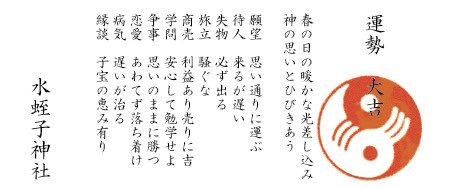 運勢 大吉
春の日の暖かな光差し込み
神の思いとひびきあう
願望 思い通りに運ぶ
待人 来るが遅い
失物 必ず出る
旅立 騒ぐな
商売 利益あり売りに吉
学問 安心して勉学せよ
争事 思いのままに勝つ
恋愛 あわてず落ち着け
病気 遅いが治る
縁談 子宝の恵み有り
水蛭子神社